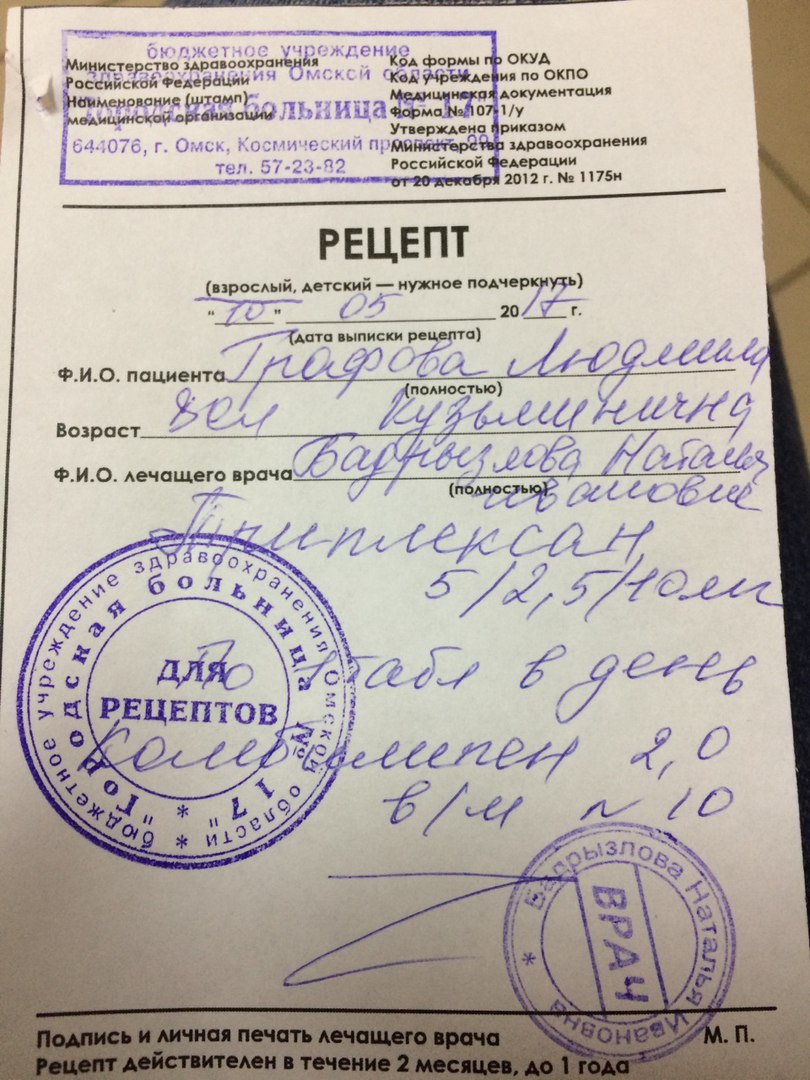 бюджетное учреждение
здравоохранения Омской области
Городская больница № 17
644076, г. Омск, Космический проспект, 99
тел. 57-23-82
Министерство здравоохранения
Российской Федерации
Наименование (штамп)
медицинской организации
Код формы по ОКУД
Код учреждения по ОКПО
Медицинская документация
Форма № 107-1/у
Утверждена приказом
Министерства здравоохранения
Российской Федерации
от 20 декабря 2012 г. № 1175н
РЕЦЕПТ
(взрослый, детский — нужное подчеркнуть)
"10" 05 2017 г.
(дата выписки рецепта)
Ф.И.О. пациента Графова Людмила
(полностью)
Возраст Кузьминична
Ф.И.О. лечащего врача Бадрызлова Наталья
(полностью) Ивановна
Триплексан
5/2,5/10мг
По 1 табл в день
Комбилипен 2,0
в/м N 10
бюджетное учреждение здравоохранения Омской области *
"Городская больница № 17" *
ДЛЯ
РЕЦЕПТОВ
Бадрызлова Наталья Ивановна *
ВРАЧ
Подпись и личная печать лечащего врача М. П.
Рецепт действителен в течение 2 месяцев, до 1 года